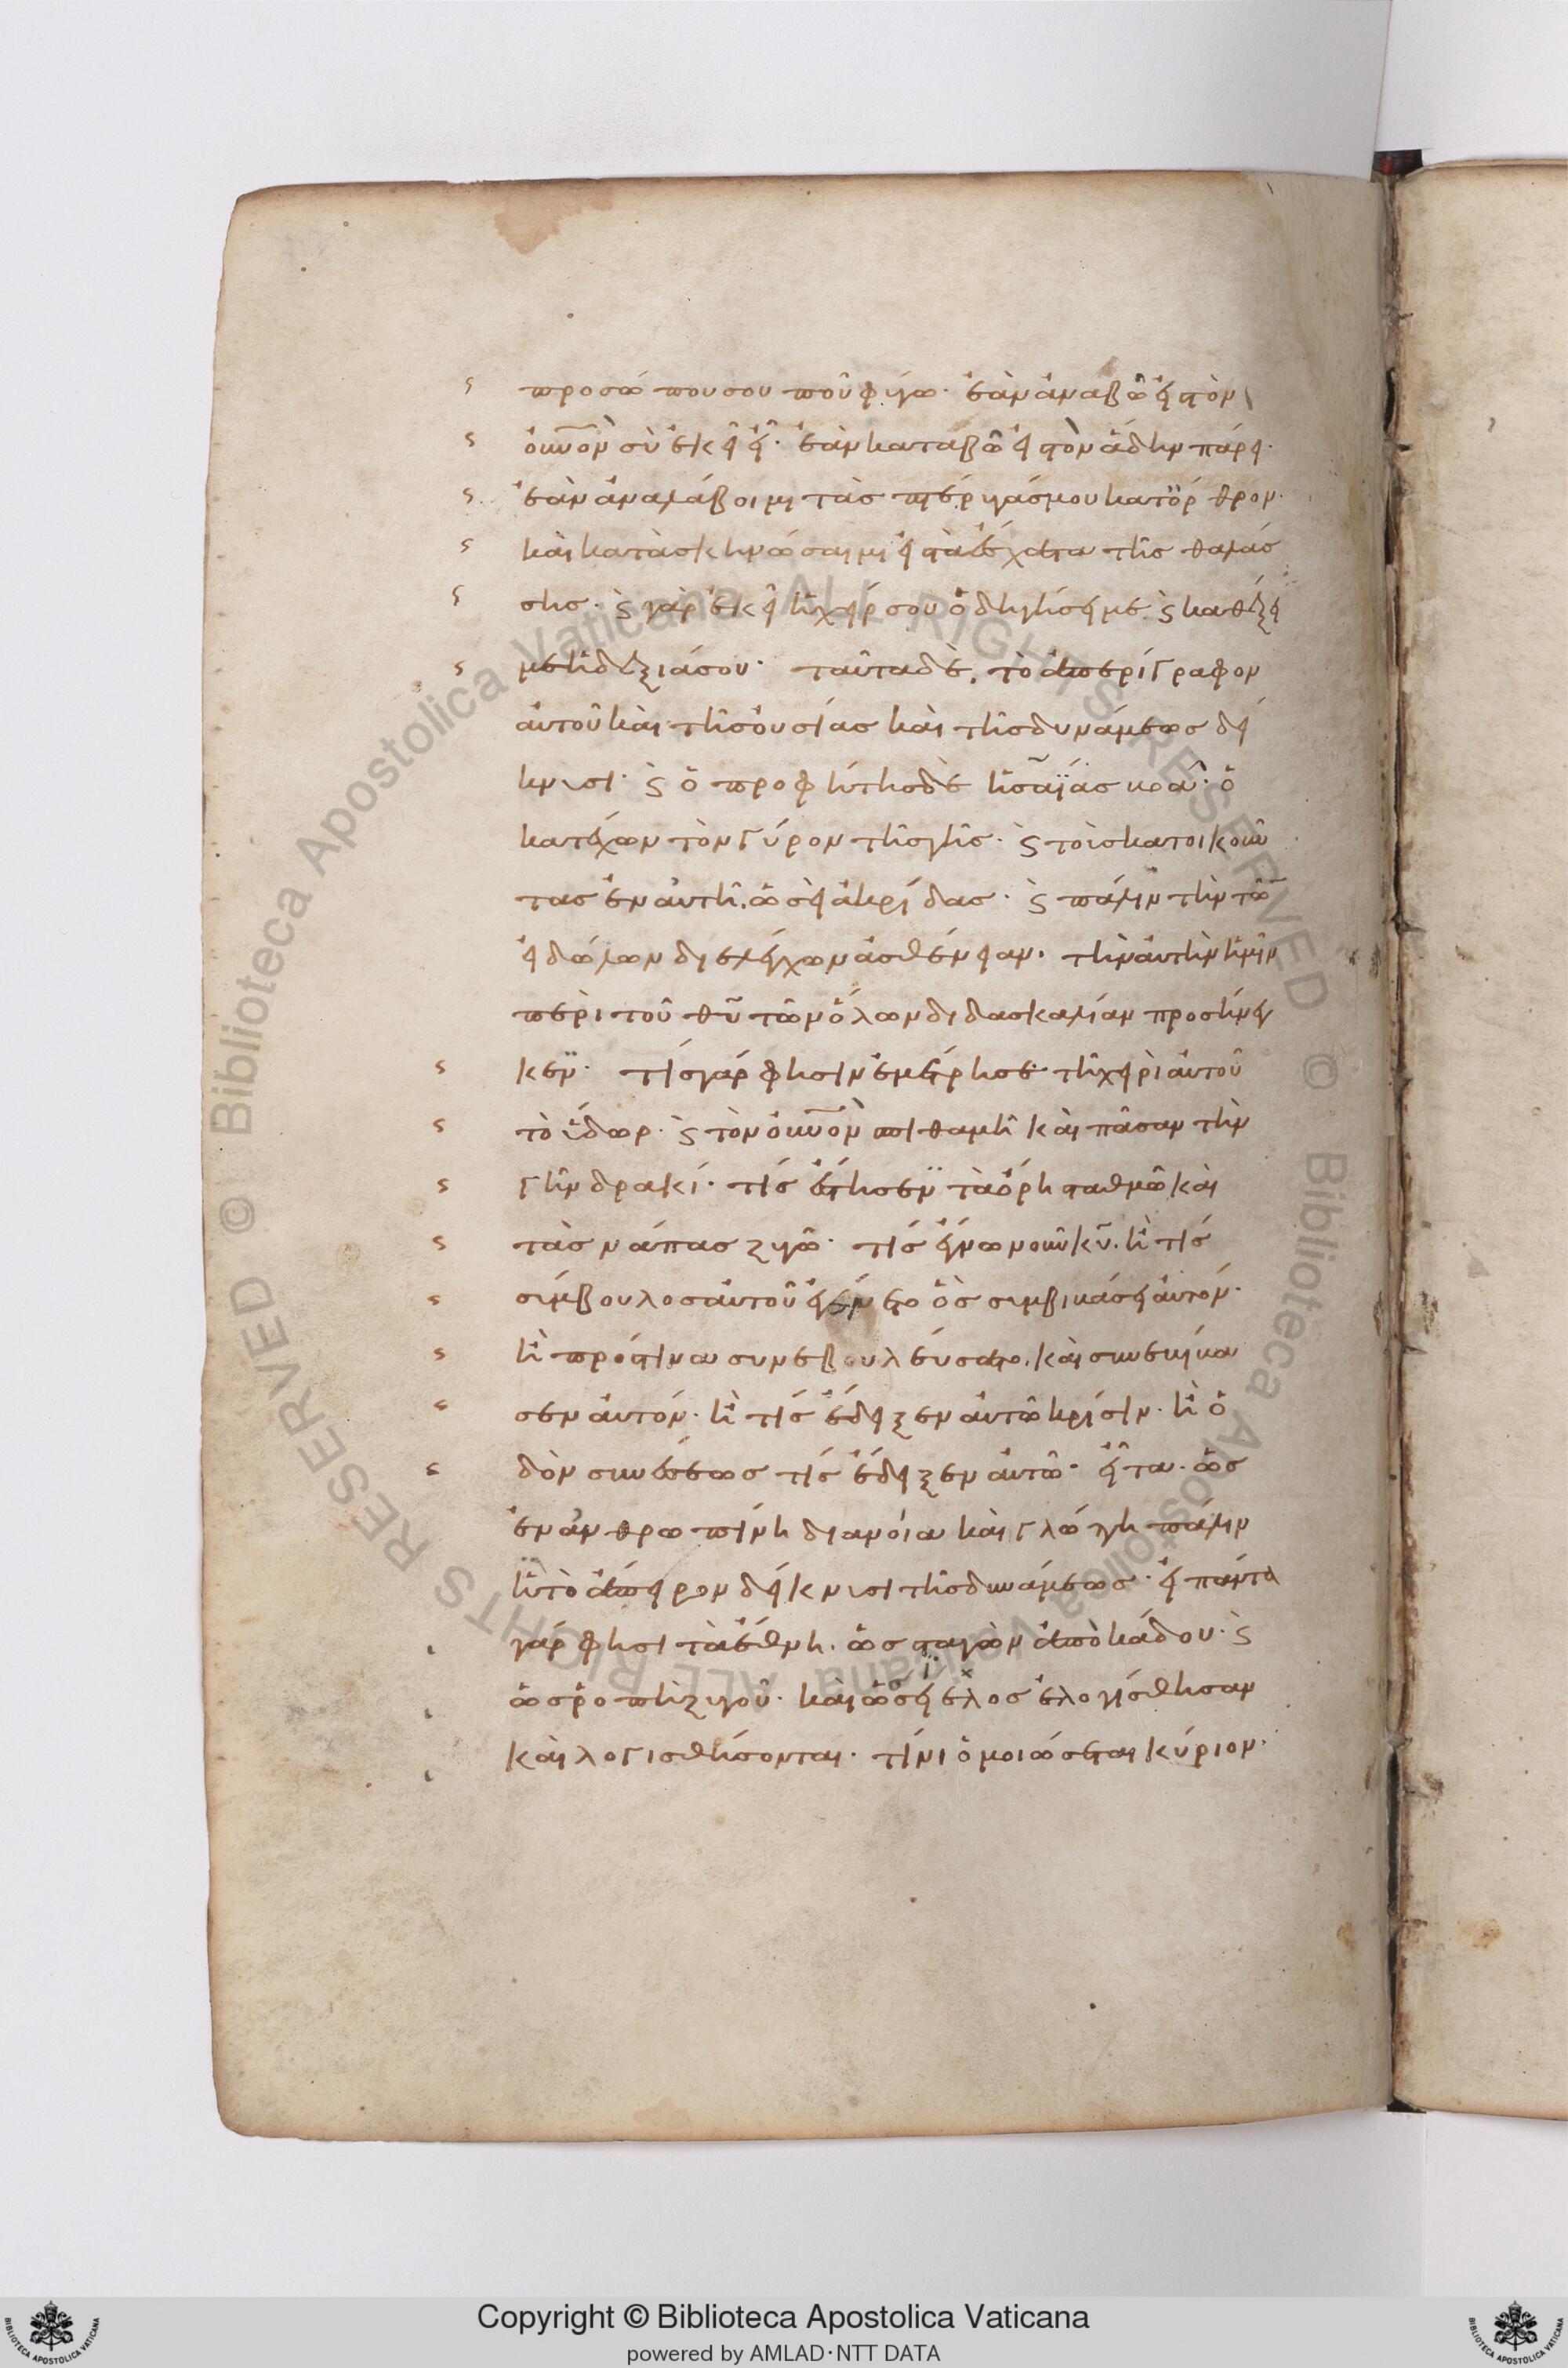 προσώπου σου ποῦ φύγω· ἐὰν ἀναβῶ εἰς τὸν
οὐνὸν σὺ ἐκεῖ εἶ· ἐὰν καταβῶ εἰς τὸν ἅδην πάρει·
ἐὰν ἀναλάβοιμι τὰς πτέρυγάς μου κατ' ὄρθρον·
καὶ κατασκηνώσαιμι εἰς τὰ ἔσχατα τῆς θαλάσ
σης· ϗ γὰρ ἐκεῖ ἡ χείρ σου ὁδηγήσει με· ϗ καθέξει
με ἡ δεξιά σου· ταῦτα δὲ, τὸ ἀπερίγραφον
αὐτοῦ καὶ τῆς οὐσίας καὶ τῆς δυνάμεως δεί
κνυσι· ϗ ὁ προφήτης δὲ ἡσαΐας κρά· ὁ
κατέχων τὸν γύρον τῆς γῆς· ϗ τοὺς κατοικοῦν
τας ἐν αὐτῆ, ὡσεὶ ἀκρίδας· ϗ πάλιν τὴν τῶν
εἰδώλων διελέγχων ἀσθένειαν· τὴν αὐτὴν ἡμῖν
περὶ τοῦ θῦ τῶν ὅλων διδασκαλίαν προσήνεγ
κεν· τίς γάρ φησιν ἐμέτρησε τῆ χειρὶ αὐτοῦ
τὸ ὕδωρ· ϗ τὸν οὐνὸν σπιθαμῆ καὶ πᾶσαν τὴν
γῆν δρακί· τίς ἔστησεν τὰ ὄρη σταθμῶ καὶ
τὰς νάπας ζυγῶ· τίς ἔγνω νοῦν κῦ· ἢ τίς
σύμβουλος αὐτοῦ ἐγένετο ὃς συμβιβάσει αὐτόν·
ἢ πρὸς τίνα συνεβουλεύσατο, καὶ συνεβίβα
σεν αὐτόν· ἢ τίς ἔδειξεν αὐτῶ κρίσιν· ἢ ὁ
δὸν συνέσεως τίς ἔδειξεν αὐτῶ· εἶτα· ὡς
ἐν ἀνθρωπίνη διανοία καὶ γλώττη πάλιν
ἢ τὸ ἄπειρον δείκνυσι τῆς δυνάμεως· εἰ πάντα
γάρ φησι τὰ ἔθνη· ὡς σταγὼν ἀπὸ κάδου· ϗ
ὡς ῥοπὴ ζυγοῦ· καὶ ὡς σίελος ἐλογίσθησαν
καὶ λογισθήσονται· τίνι ὁμοιώσεται κύριον·
Copyright © Biblioteca Apostolica Vaticana
powered by AMLAD·NTT DATA